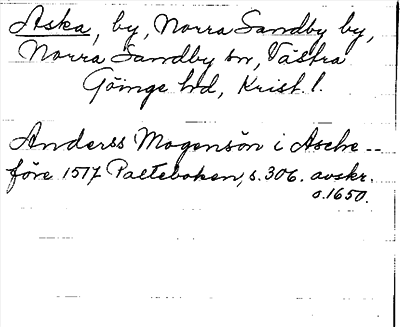 Aska, by, Norra Sandby by,
Norra Sandby sn, Västra
Göinge hd, Krist. l.
Anderss Mogensön i Asche --
före 1517 Palteboken, s. 306. avskr.
o. 1650.